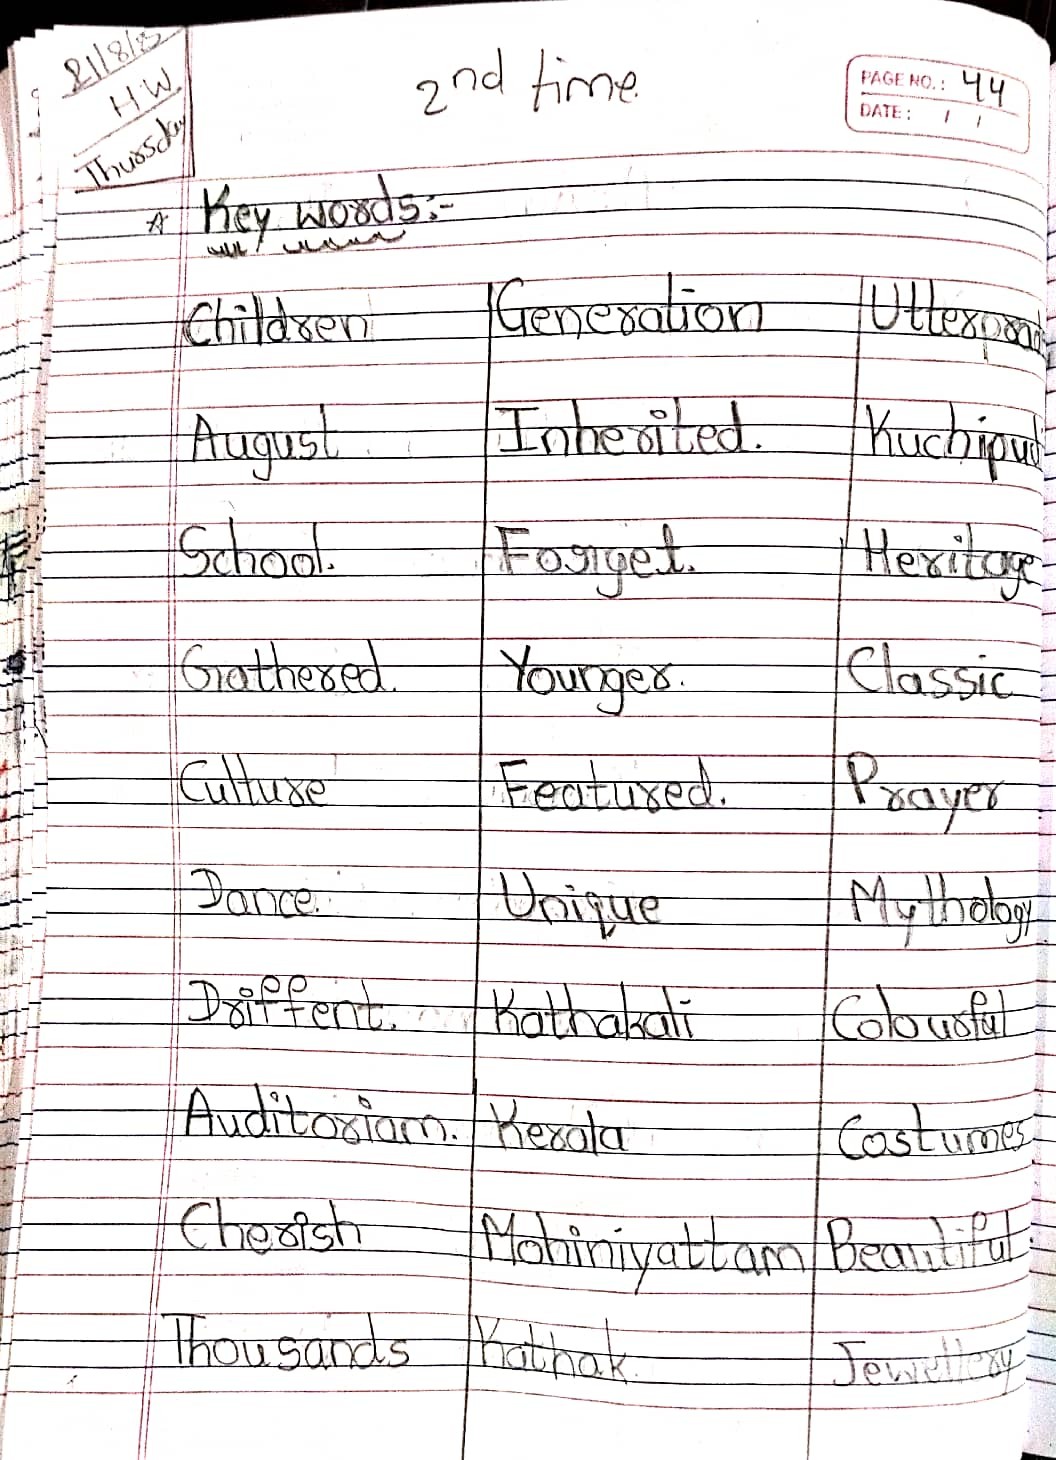 21/8/25
H.W.
Thursday
2nd time.
PAGE NO.: 44
DATE: / /
Key words:-
Children Generation
August Inherited. Kuchipud
School. Forget. Heritage
Gathered. Younger. Classic
Culture Featured. Prayer
Dance. Unique Mythology
Driffent. Kathakali Colourful
Auditoriam. Kerala Costumes
Cherish Mohiniyattam Beautiful
Thousands Kathak Jewellery